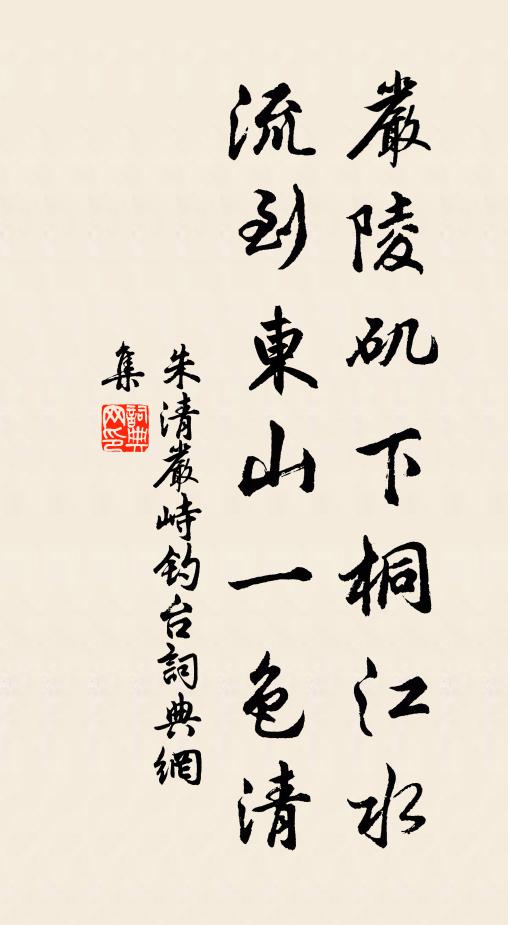 嚴陵矶下桐江水
流到東山一色清
朱清嚴峙钓台詞典網
集
詞典
网印